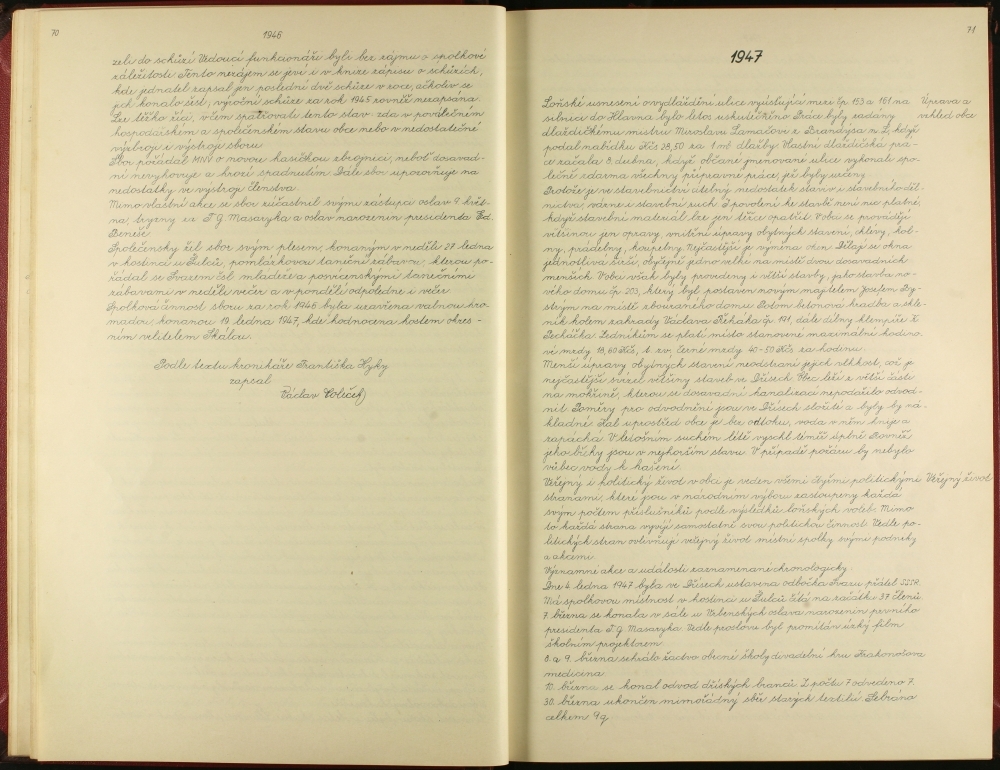 70
1946
zeli do schůzí. Vedoucí funkcionáři byli bez zájmu o spolkové
záležitosti. Tento nezájem se jeví i v knize zápisu o schůzích,
kde jednatel zapsal jen poslední dvě schůze v roce, ačkoliv se
jich konalo šest, výroční schůze za rok 1945 rovněž nezapsána.
Lze těžko říci, v čem spatřovati tento stav, zda v poválečném
hospodářském a společenském stavu obce nebo v nedostatečné
výzbroji i výstroji sboru.
Sbor požádal MNV o novou hasičskou zbrojnici, neboť dosavad-
ní nevyhovuje a hrozí spadnutím. Dále sbor upozorňuje na
nedostatky ve výstroji členstva.
Mimo vlastní akce se sbor zúčastnil svými zástupci oslav 9. květ-
na, tryzny za T. G. Masaryka a oslav narozenin presidenta Ed.
Beneše.
Společensky žil sbor svým plesem, konaným v neděli 27. ledna
v hostinci u Šulců, pomlázkovou taneční zábavou, kterou po-
řádal se Svazem čsl. mládeže a posvícenskými tanečními
zábavami v neděli večer a v pondělí odpoledne i večer.
Spolková činnost sboru za rok 1946 byla uzavřena valnou hro-
madou konanou 19. ledna 1947, kde hodnocena hostem okres-
ním velitelem Skálou.
Podle textu kronikáře Františka Hyky
zapsal
Václav Holeček
71
1947
Loňské usnesení o vydláždění ulice vyúsťující mezi čp. 153 a 161 na
silnici do Hlavna bylo letos uskutečněno. Práce byly zadány
dlaždičskému mistru Miroslavu Lamačovi z Brandýsa n. L., když
podal nabídku Kčs 28,50 za 1 m² dlažby. Vlastní dlaždičská prá-
ce začala 8. dubna, když občané jmenované ulice vykonali spo-
lečně zdarma všechny přípravné práce, jež byly určeny.
Úprava a
vzhled obce
Protože je ve stavebnictví útebný nedostatek staviv i stavebního děl-
nictva, vázne i stavební ruch. I povolení ke stavbě není nic platné,
když stavební materiál lze jen těžce opatřit. V obci se provádějí
většinou jen opravy, vnitřní úpravy obytných stavení, chlévy, kol-
ny, prádelny, koupelny. Nejčastější je výměna oken. Dělají se okna
jednotlivá širší, obyčejně jedno velké na místě dvou dosavadních
menších. V obci však byly provedeny i větší stavby, jako stavba no-
vého domu čp. 203, který byl postaven novým majitelem Josefem By-
strým na místě zbouraného domu. Potom betonová hradba a skle-
ník kolem zahrady Václava Řeháka čp. 191, dále dílny klempíře K.
Pecháčka. Zedníkům se platí místo stanovené maximální hodino-
vé mzdy 18,60 Kčs, t. zv. černé mzdy 40-50 Kčs za hodinu.
Menší úpravy obytných stavení neodstraní jejich vlhkost, což je
nejčastější svízel většiny staveb ve Dřísech. Obec leží z větší části
na mokřině, kterou se dosavadní kanalizací nepodařilo odvod-
nit. Poměry pro odvodnění jsou ve Dřísech složité a byly by ná-
kladné. Žál uprostřed obce je bez odtoku, voda v něm hnije a
zapáchá. V letošním suchém létě vyschl téměř úplně. Rovněž
jeho břehy jsou v nejhorším stavu. V případě požáru by nebylo
vůbec vody k hašení.
Veřejný i politický život v obci je veden všemi čtyřmi politickými
stranami, které jsou v národním výboru zastoupeny každá
svým počtem příslušníků podle výsledků loňských voleb. Mimo
to každá strana vyvíjí samostatně svou politickou činnost. Vedle po-
litických stran ovlivňují veřejný život místní spolky svými podniky
a akcemi.
Veřejný život
Významné akce a události zaznamenané chronologicky.
Dne 4. ledna 1947 byla ve Dřísech ustavena odbočka Svazu přátel SSSR.
Má spolkovou místnost v hostinci u Šulců. Čítá na začátku 37 členů.
7. března se konala v sále u Vrbenských oslava narozenin prvního
presidenta T. G. Masaryka. Vedle proslovu byl promítán úzký film
školním projektorem.
8. a 9. března sehrálo žactvo obecné školy divadelní hru Krakonošova
medicina.
10. března se konal odvod dříských branců. Z počtu 7 odvedeno 7.
30. března ukončen mimořádný sběr starých textilií. Sebráno
celkem 9 q.